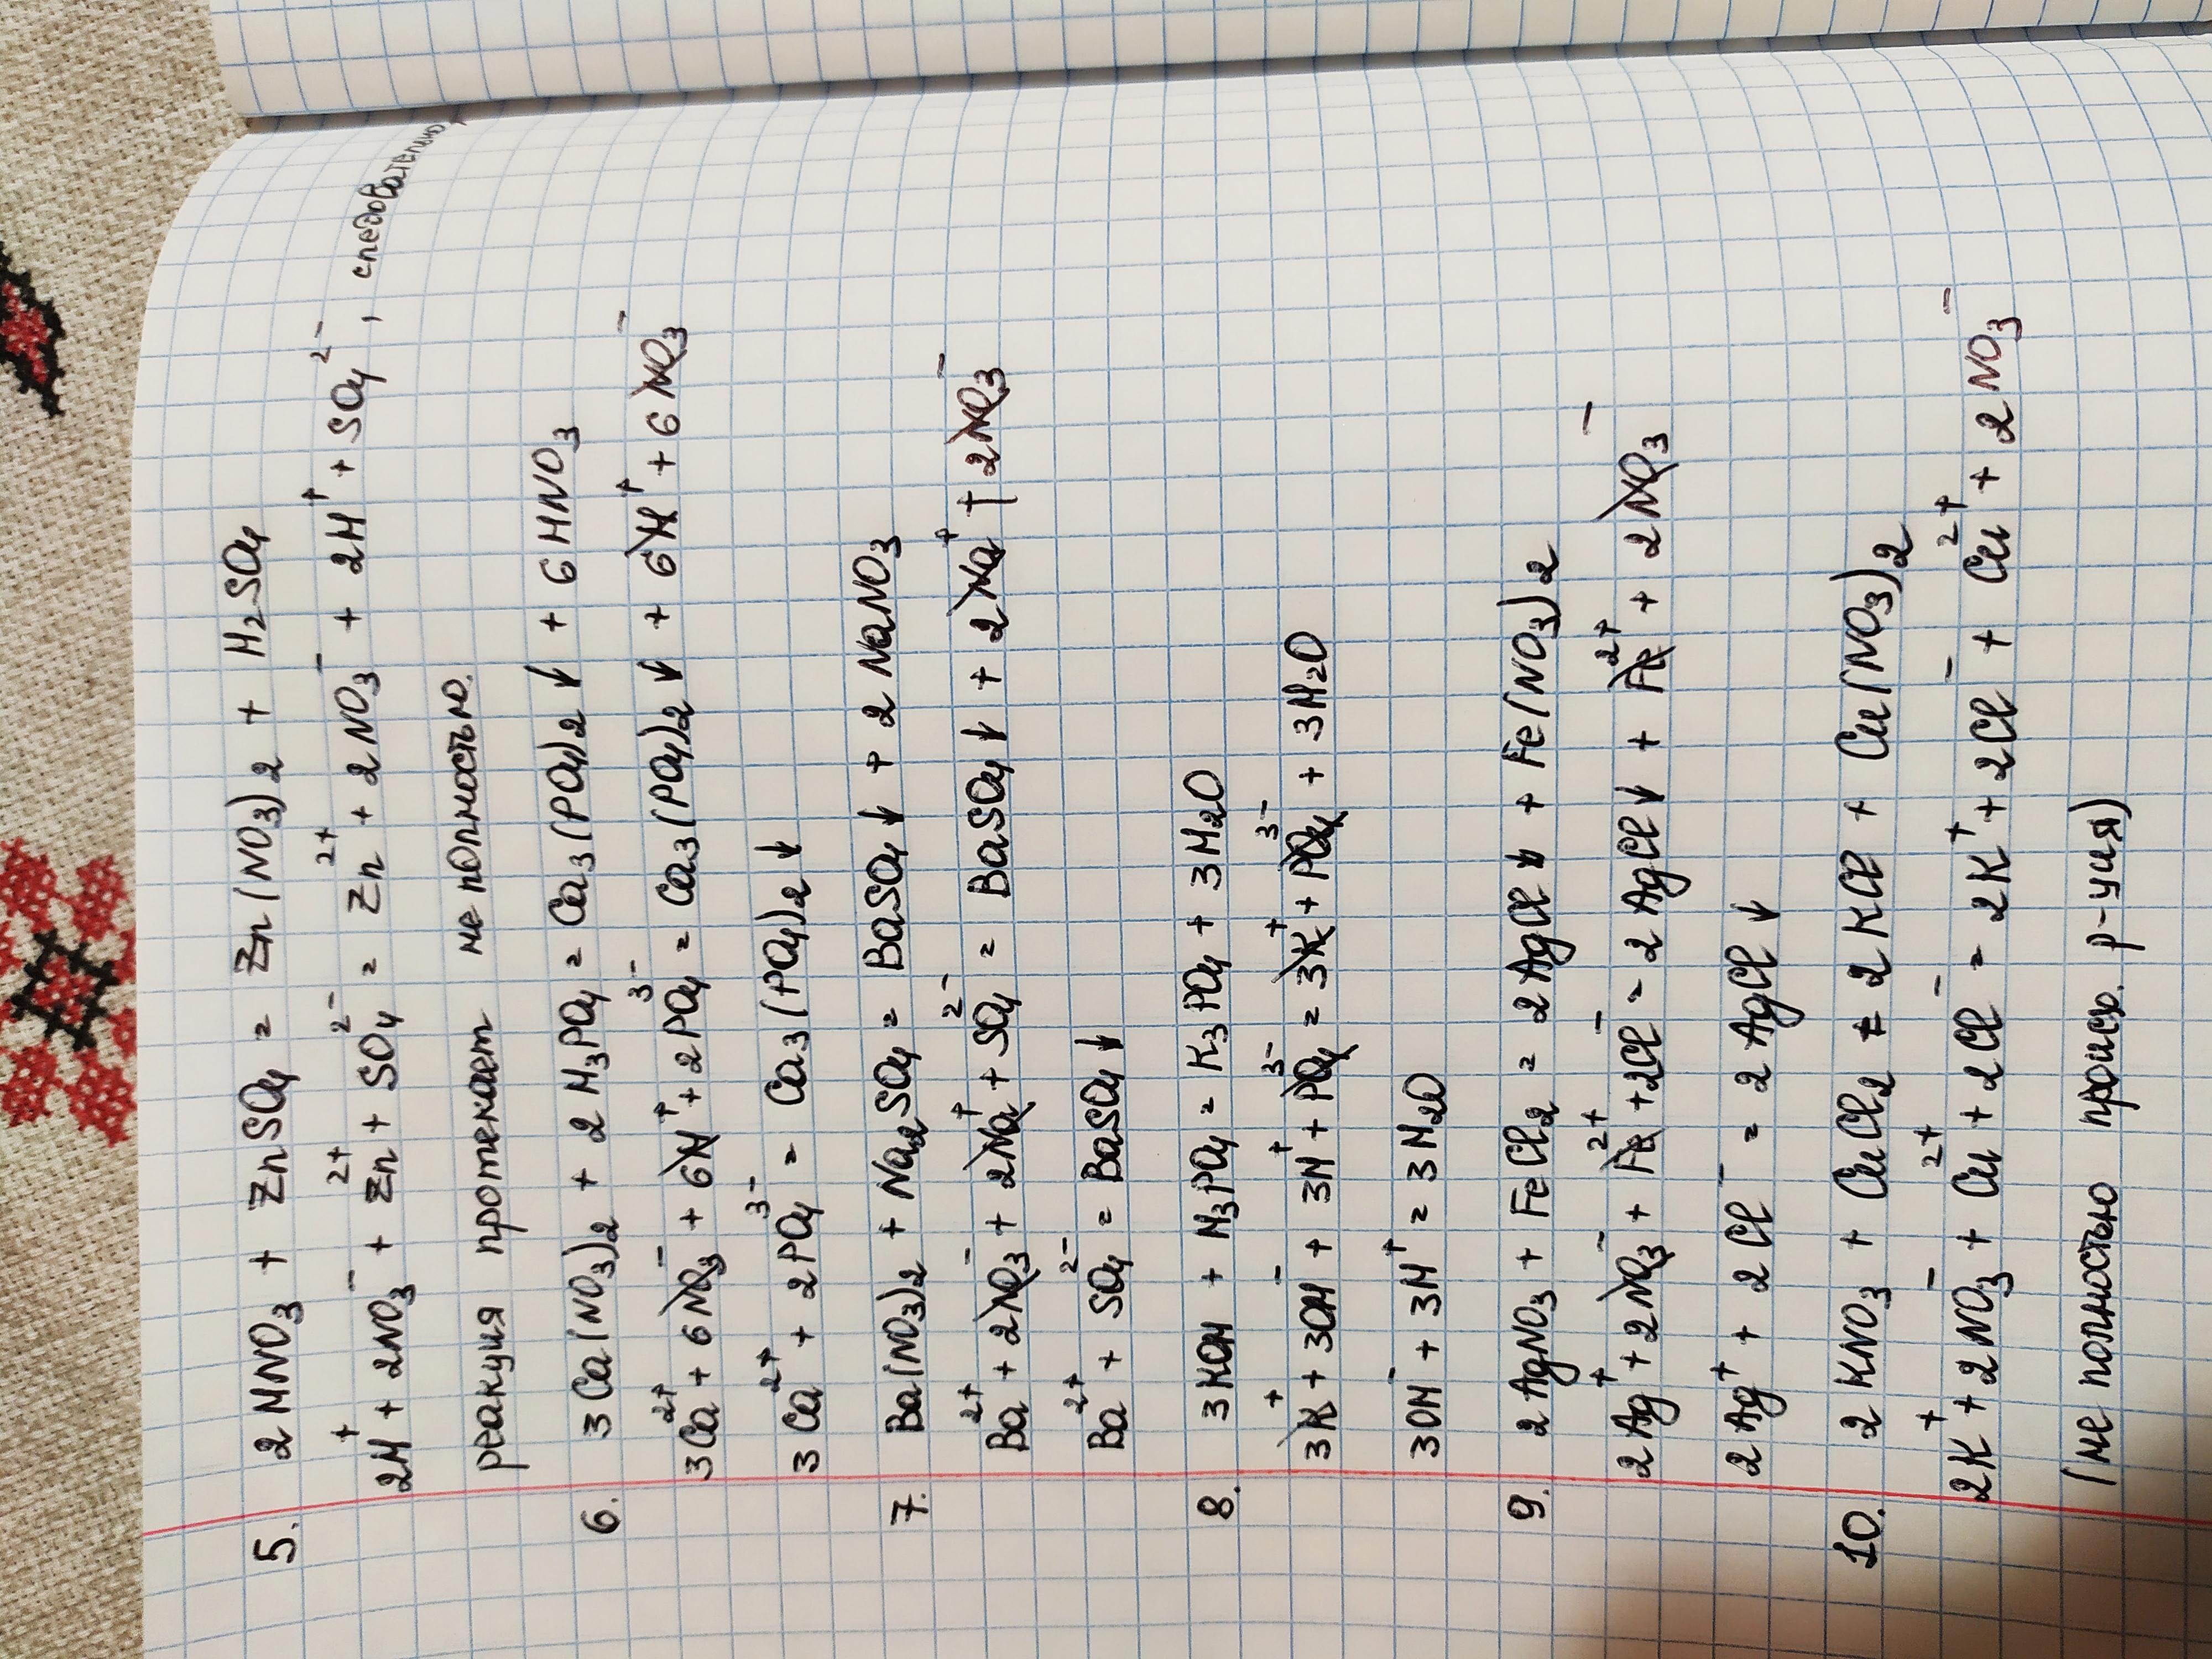 5. 2HNO₃ + ZnSO₄ = Zn(NO₃)₂ + H₂SO₄
2H⁺ + 2NO₃⁻ + Zn²⁺ + SO₄²⁻ = Zn²⁺ + 2NO₃⁻ + 2H⁺ + SO₄²⁻, следовательно,
реакция протекает не полностью.
6. 3Ca(NO₃)₂ + 2H₃PO₄ = Ca₃(PO₄)₂↓ + 6HNO₃
3Ca²⁺ + 6NO₃⁻ + 6H⁺ + 2PO₄³⁻ = Ca₃(PO₄)₂↓ + 6H⁺ + 6NO₃⁻
3Ca²⁺ + 2PO₄³⁻ = Ca₃(PO₄)₂↓
7. Ba(NO₃)₂ + Na₂SO₄ = BaSO₄↓ + 2NaNO₃
Ba²⁺ + 2NO₃⁻ + 2Na⁺ + SO₄²⁻ = BaSO₄↓ + 2Na⁺ + 2NO₃⁻
Ba²⁺ + SO₄²⁻ = BaSO₄↓
8. 3KOH + H₃PO₄ = K₃PO₄ + 3H₂O
3K⁺ + 3OH⁻ + 3H⁺ + PO₄³⁻ = 3K⁺ + PO₄³⁻ + 3H₂O
3OH⁻ + 3H⁺ = 3H₂O
9. 2AgNO₃ + FeCl₂ = 2AgCl↓ + Fe(NO₃)₂
2Ag⁺ + 2NO₃⁻ + Fe²⁺ + 2Cl⁻ = 2AgCl↓ + Fe²⁺ + 2NO₃⁻
2Ag⁺ + 2Cl⁻ = 2AgCl↓
10. 2KNO₃ + CuCl₂ ≠ 2KCl + Cu(NO₃)₂
2K⁺ + 2NO₃⁻ + Cu²⁺ + 2Cl⁻ = 2K⁺ + 2Cl⁻ + Cu²⁺ + 2NO₃⁻
(не полностью происх. р-ция)